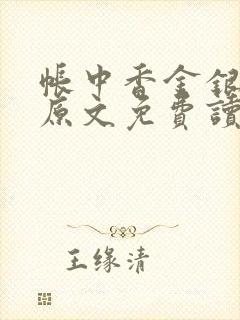 帳中香金銀
原文免費讀
王缘清